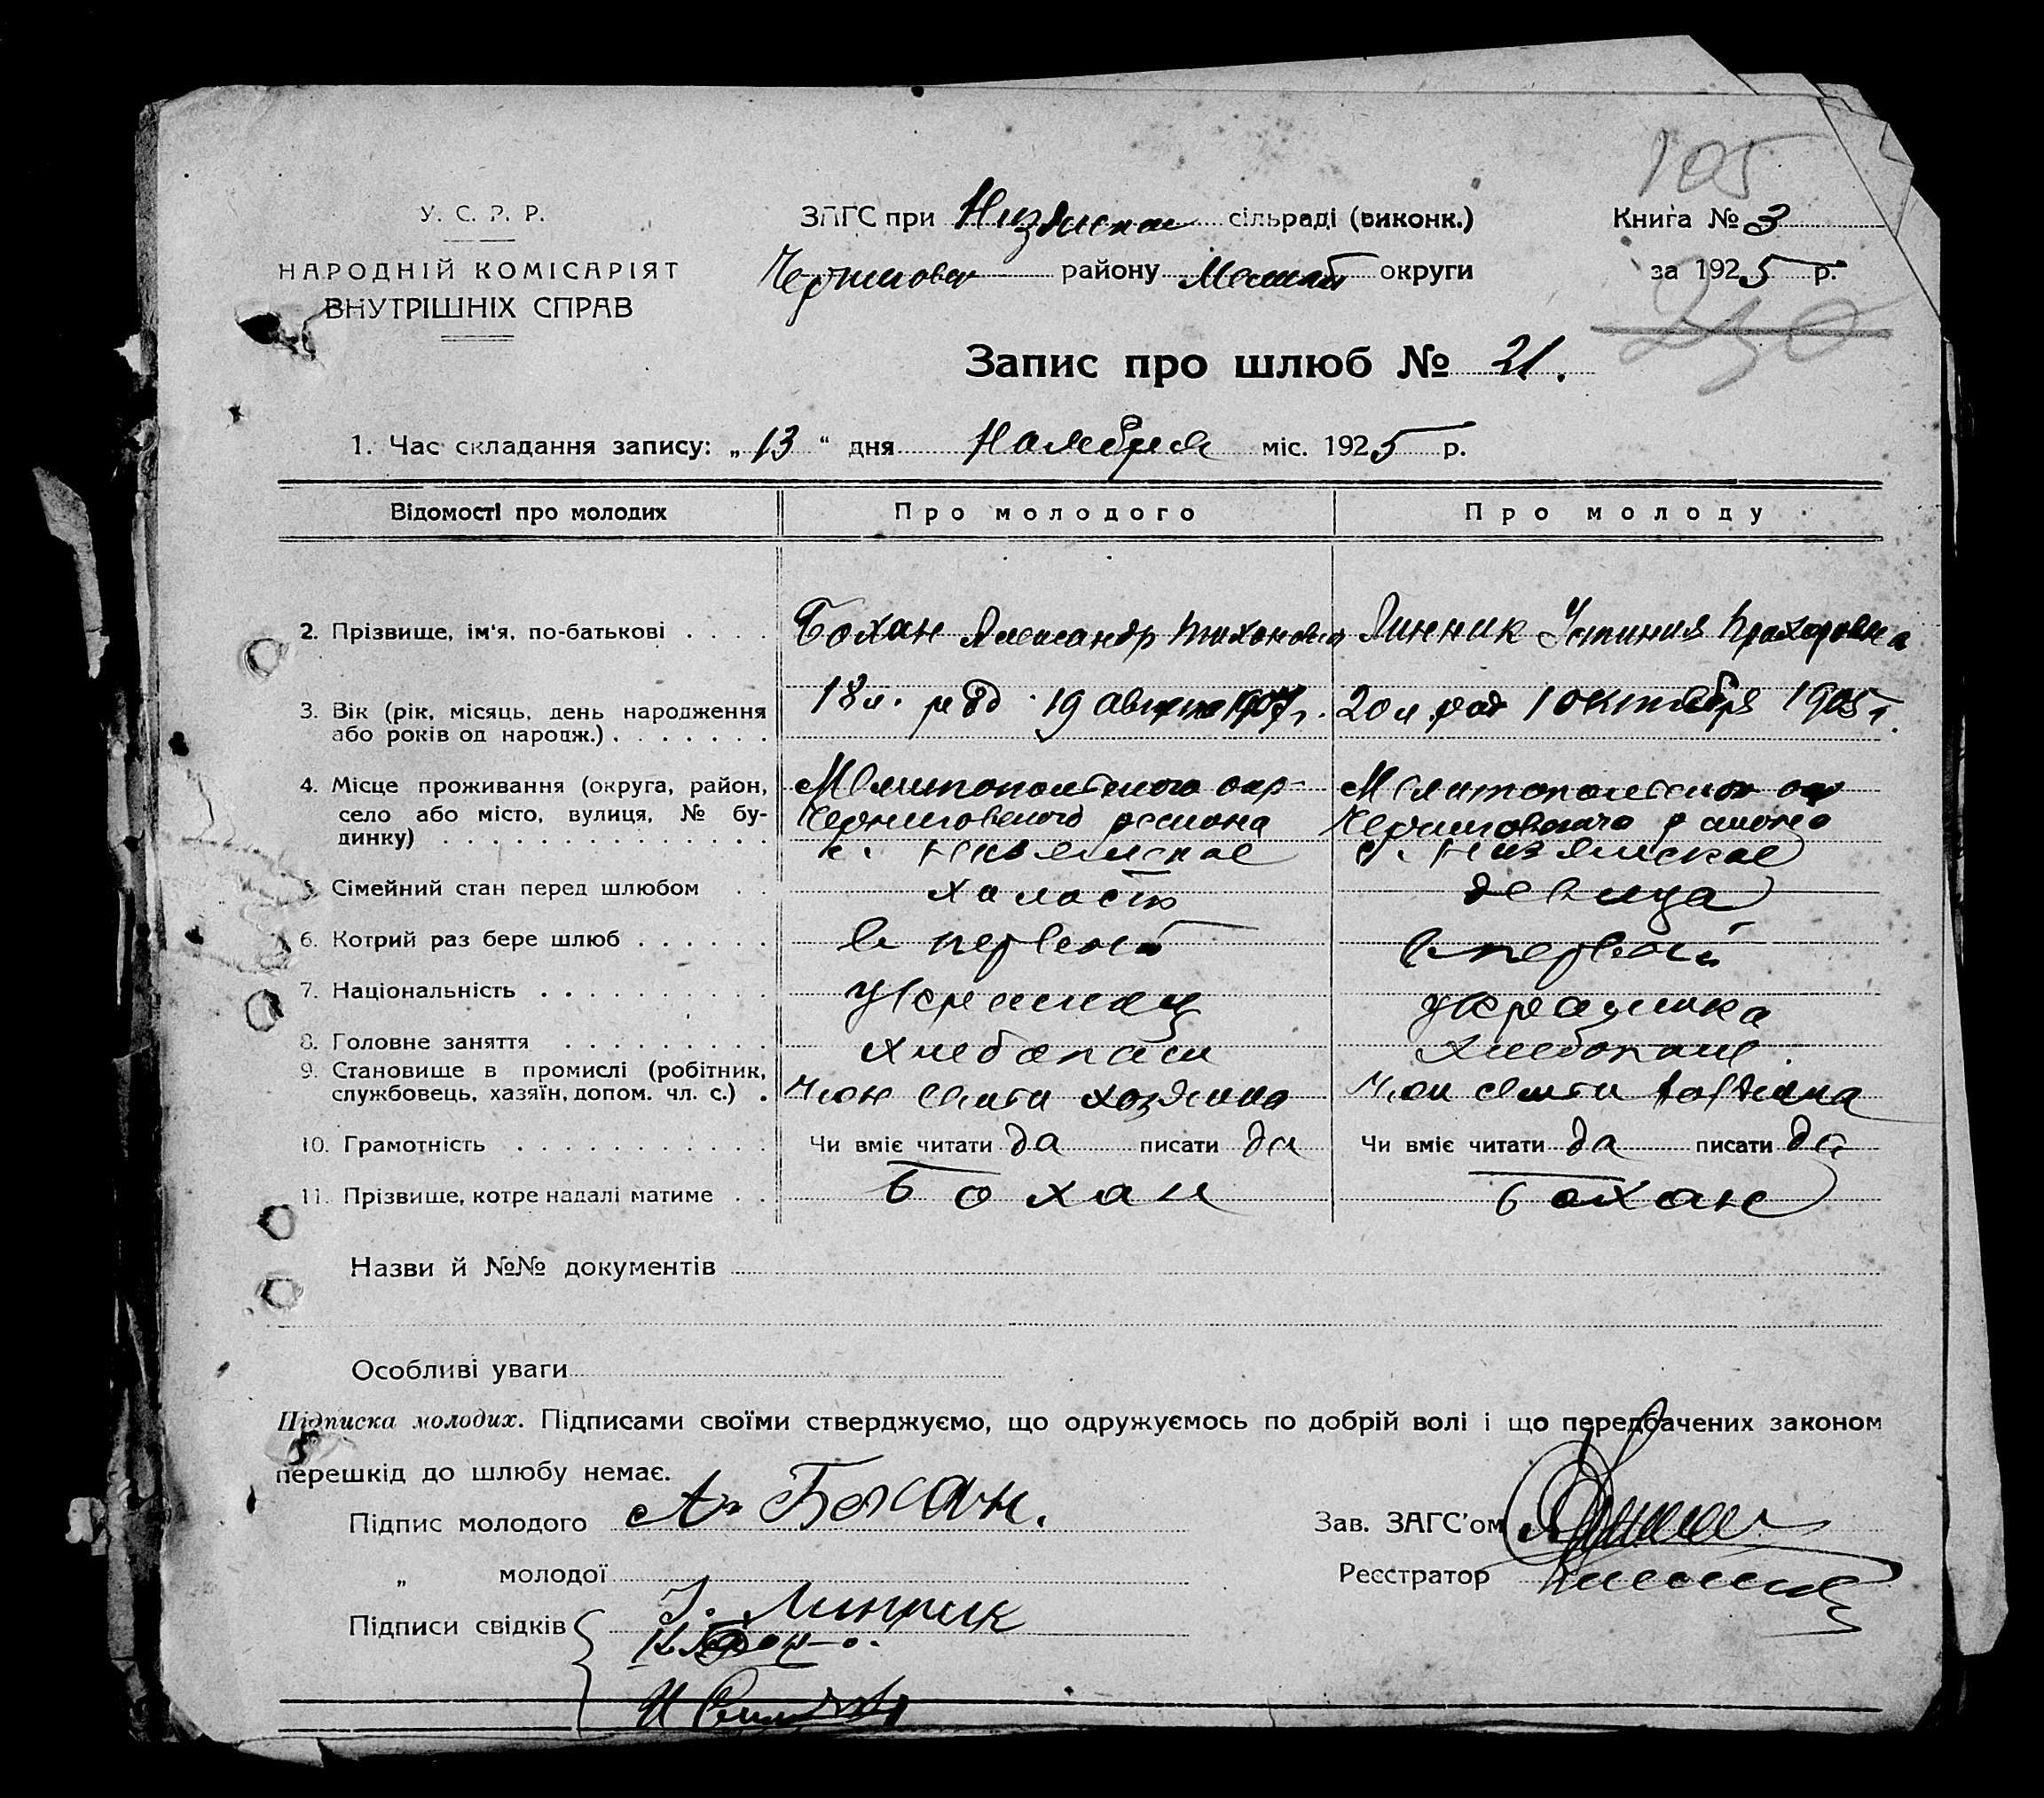 105
У. С. Р. Р.
НАРОДНІЙ КОМІСАРІЯТ
ВНУТРІШНІХ СПРАВ
ЗАГС при сільраді (виконк.)
району округи
Книга № 3
за 1925 р.
Запис про шлюб № 21.
1. Час складання запису: „13“ дня Наября міс. 1925 р.
Відомості про молодих Про молодого Про молоду
2. Прізвище, ім'я, по-батькові . . . . Бохан Александр Тихонович Линник Устиния Прохоровна
3. Вік (рік, місяць, день народження або років од народж.) . . . . . . . 18 л. род. 19 августа 1907 г. 20 л род 1 октября 1905 г.
4. Місце проживання (округа, район, село або місто, вулиця, № будинку) Мелитопольского окр- Черниговского района с. Низянское Мелитопольского окр Черниговского района с. Низянское
5. Сімейний стан перед шлюбом . . холост девица
6. Котрий раз бере шлюб . . . . . . в первой в первой
7. Національність . . . . . . . . . . украинец украинка
8. Головне заняття . . . . . . . . .
9. Становище в промислі (робітник, службовець, хазяїн, допом. чл. с.) . Член семти хозяина Член семти хозяина
10. Грамотність . . . . . . . . . . . Чи вміє читати да писати да Чи вміє читати да писати да
11. Прізвище, котре надалі матиме . . Бохан Бохан
Назви й №№ документів
Особливі уваги
Підписка молодих. Підписами своїми стверджуємо, що одружуємось по добрій волі і що передбачених законом
перешкід до шлюбу немає.
Підпис молодого А. Бохан.
Зав. ЗАГС'ом
„ молодої
Реєстратор
У. Линник
Підписи свідків